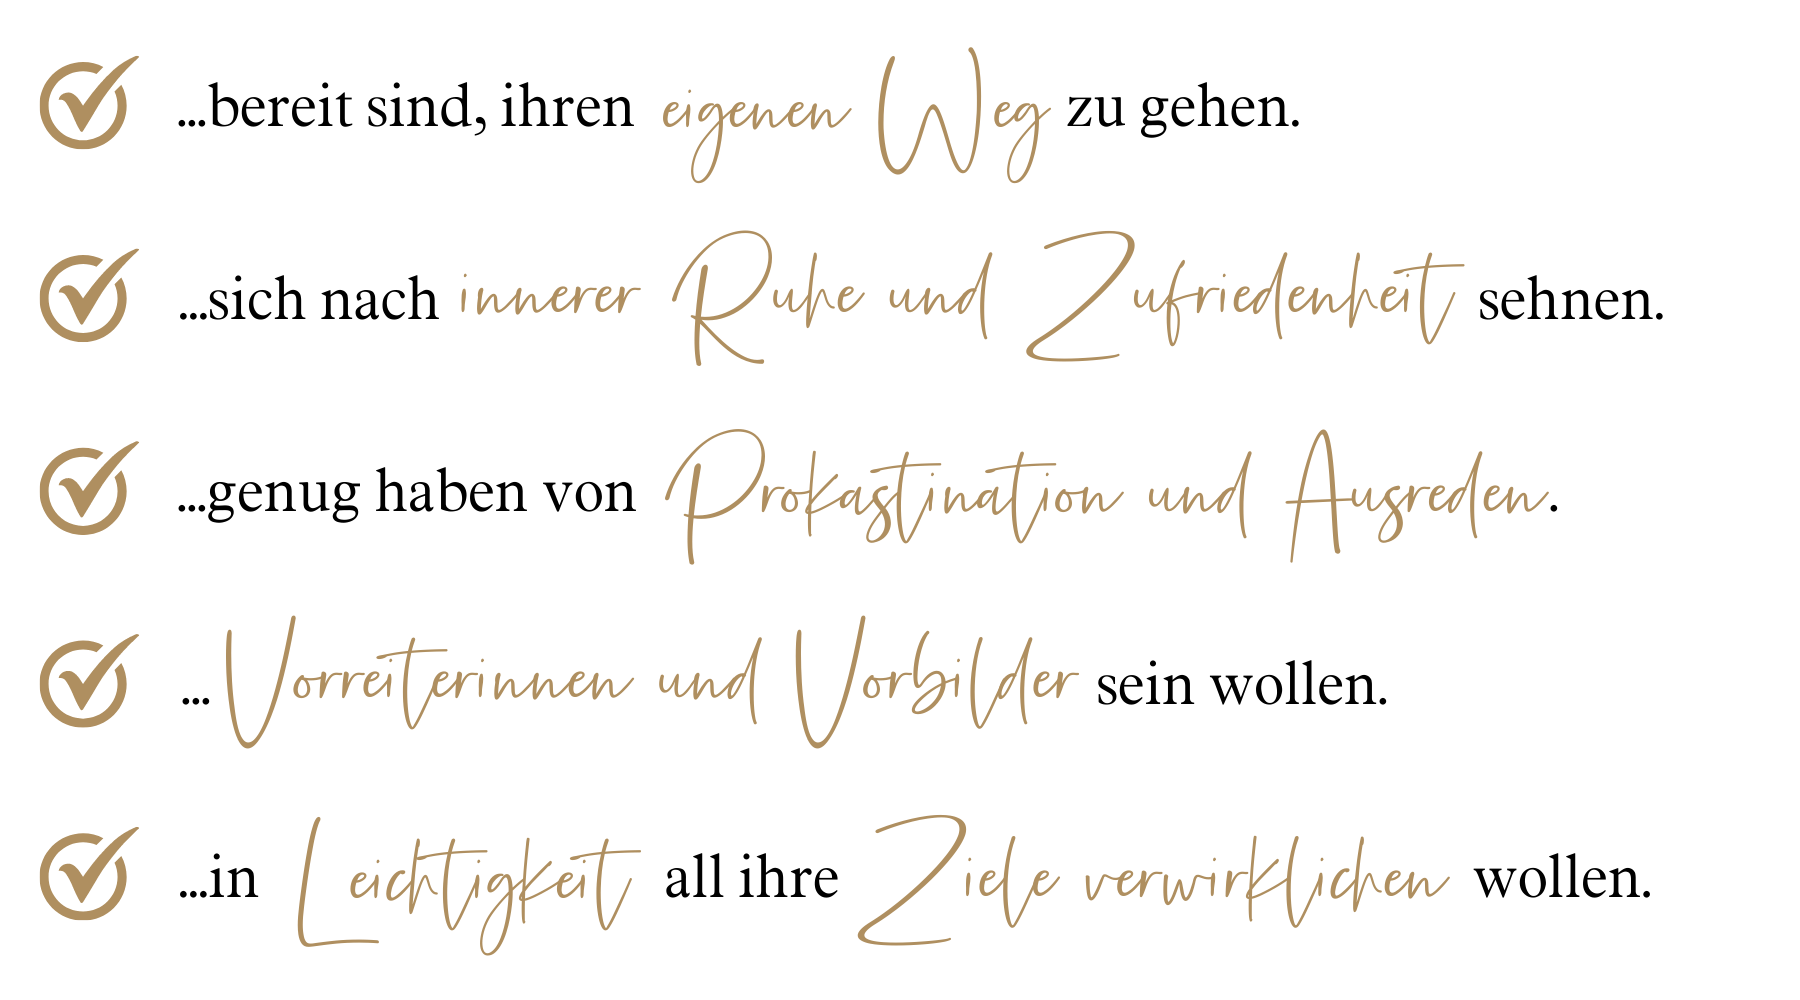 ...bereit sind, ihren eigenen Weg zu gehen.
...sich nach innerer Ruhe und Zufriedenheit sehnen.
...genug haben von Prokastination und Ausreden.
... Vorreiterinnen und Vorbilder sein wollen.
...in Leichtigkeit all ihre Ziele verwirklichen wollen.